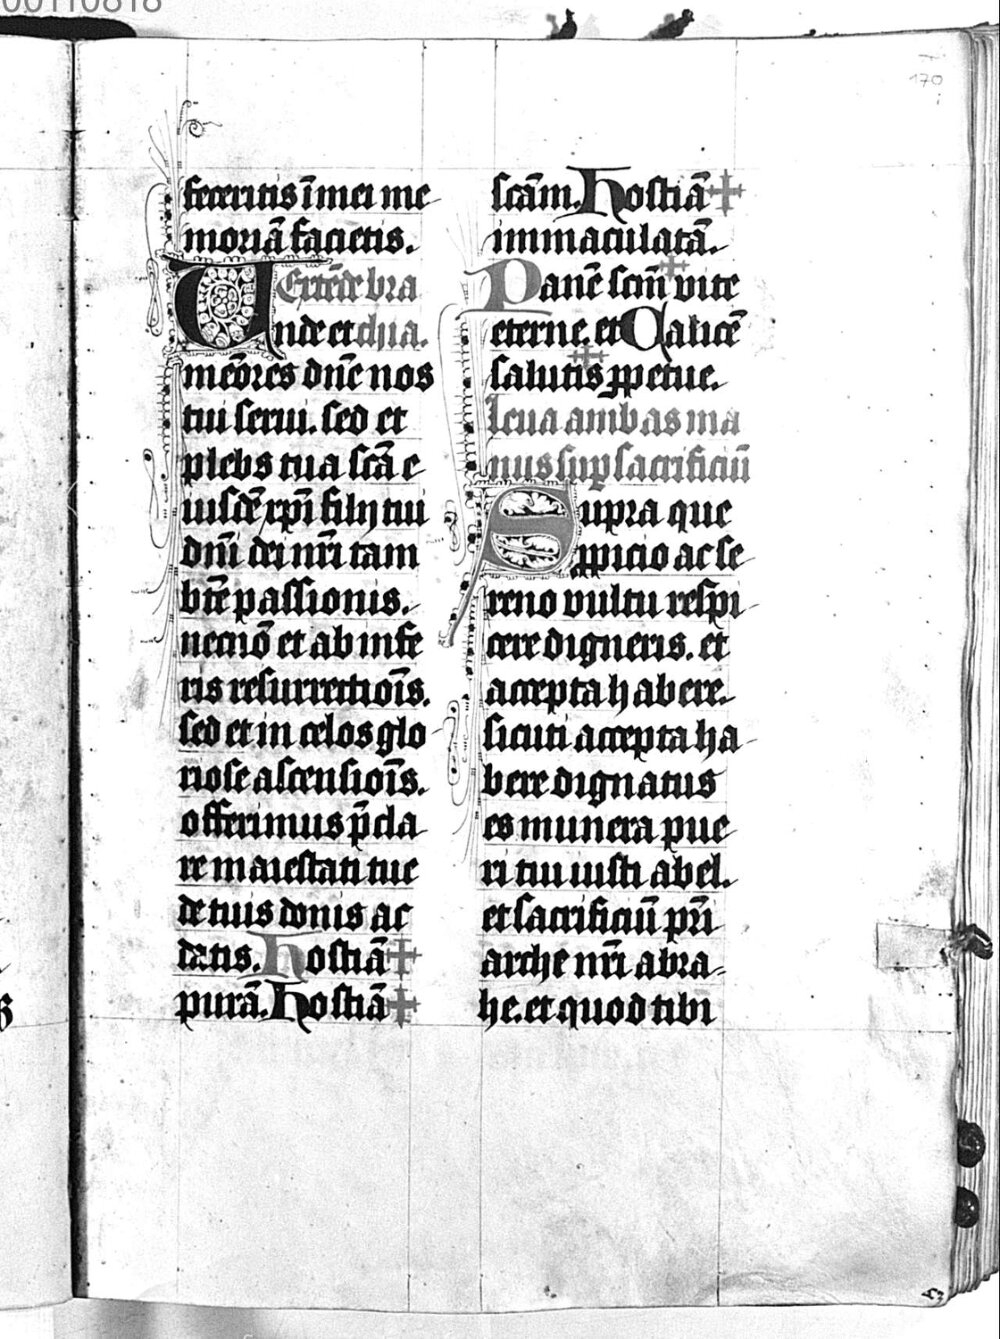 00110818
170
feceritis ī mei me
moriā facietis.
Extēde bra
Unde et chia.
meōres dn̄e nos
tui serui. sed et
plebs tua scā e
iusdē xp̄i filij tui
dn̄i dei nr̄i tam
btē passionis.
necnō et ab infe
ris resurrectiōis.
sed et in celos glo
riose ascensiōis.
offerimus p̄cla
re maiestati tue
de tuis donis ac
datis. Hostiā ✝
purā. Hostiā ✝
scām. Hostiā ✝
immaculatā.
Panē scm̄ ✝ vite
eterne. et Calicē
salutis ✝ ꝑpetue.
leua ambas ma
nus suꝑ sacrificiū
Supra que
ꝓpicio ac se
reno vultu respi
cere digneris. et
accepta habere.
sicuti accepta ha
bere dignatus
es munera pue
ri tui iusti abel.
et sacrificiū pr̄i
arche nr̄i abra
he. et quod tibi